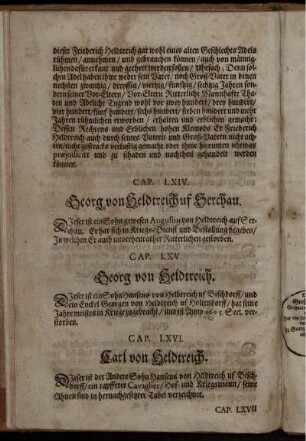 dieser Friederich Heldtreich gar wohl eines alten Geschlechtes Adels
rühmen / annehmen / und gebrauchen können / auch von männig-
lichen dafür erkant und geehret werden sollen / Uhrsach: Denn sol-
chen Adel haben ihme weder sein Vater / noch Groß-Vater in denen
nechsten zwantzig / dreyssig / viertzig / funffzig / sechtzig Jahren
seiner Vor-Eltern / Vor-Eltern Ritterliche Mannhaffte Tha-
ten und Adeliche Tugend wohl vor zwey hundert / drey hundert /
vier hundert / fünf hundert / sechs hundert / sieben hundert und mehr
Jahren rühmlichen erworben / erhalten und erblichen gemacht:
Dessen Rechtens und Erblichen hohen Kleinods Er Friederich
Heldtreich auch durch seines Vatern und Groß-Vatern nicht
nicht verlustig gemacht oder ihme hierinnen etwas
præjudiciret und zu schaden und nachtheil gehandelt werden
können.
CAP. LXIV.
Georg von Heldtreich uf Serchau.
DIeser ist ein Sohn gewesen Augustin von Heldtreich auf Ser-
chau. Er hat sich in Kriegs-Dienst und Bestallung begeben /
In welchen Er auch unverheurathet Ritterlichen gestorben.
CAP. LXV.
Georg von Heldtreich.
DIeser ist ein Sohn Hansens von Heldtreich uf Bischdorff / und
ein Enckel Georgen von Heldtreich uf Holtzendorff / hat seine
Jahr meistes im Kriege zugebracht / und ist Anno 1605. Seel. ver-
storben.
CAP. LXVI.
Carl von Heldtreich.
DIeser ist der Ander Sohn Hansens von Heldtreich uf Bisch-
dorff / ein tapfferer Cavaglier / Hof- und Kriegsmann / seine
Ahnen sind in hernachgesetzter Tabel verzeichnet.
CAP. LXVII